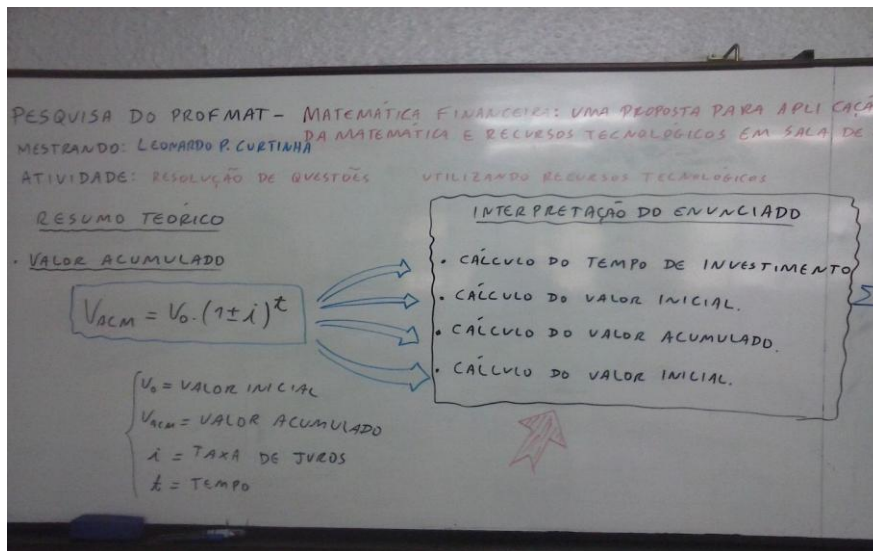 PESQUISA DO PROFMAT - MATEMÁTICA FINANCEIRA: UMA PROPOSTA PARA APLICAÇÃ
DA MATEMÁTICA E RECURSOS TECNOLÓGICOS EM SALA DE
MESTRANDO: LEONARDO P. CURTINHA
ATIVIDADE: RESOLUÇÃO DE QUESTÕES UTILIZANDO RECURSOS TECNOLÓGICOS
RESUMO TEÓRICO
. VALOR ACUMULADO
V_ACM = V_0 . (1 ± i)^t
V_0 = VALOR INICIAL
V_ACM = VALOR ACUMULADO
i = TAXA DE JUROS
t = TEMPO
INTERPRETAÇÃO DO ENUNCIADO
. CÁLCULO DO TEMPO DE INVESTIMENTO
. CÁLCULO DO VALOR INICIAL.
. CÁLCULO DO VALOR ACUMULADO.
. CÁLCULO DO VALOR INICIAL.